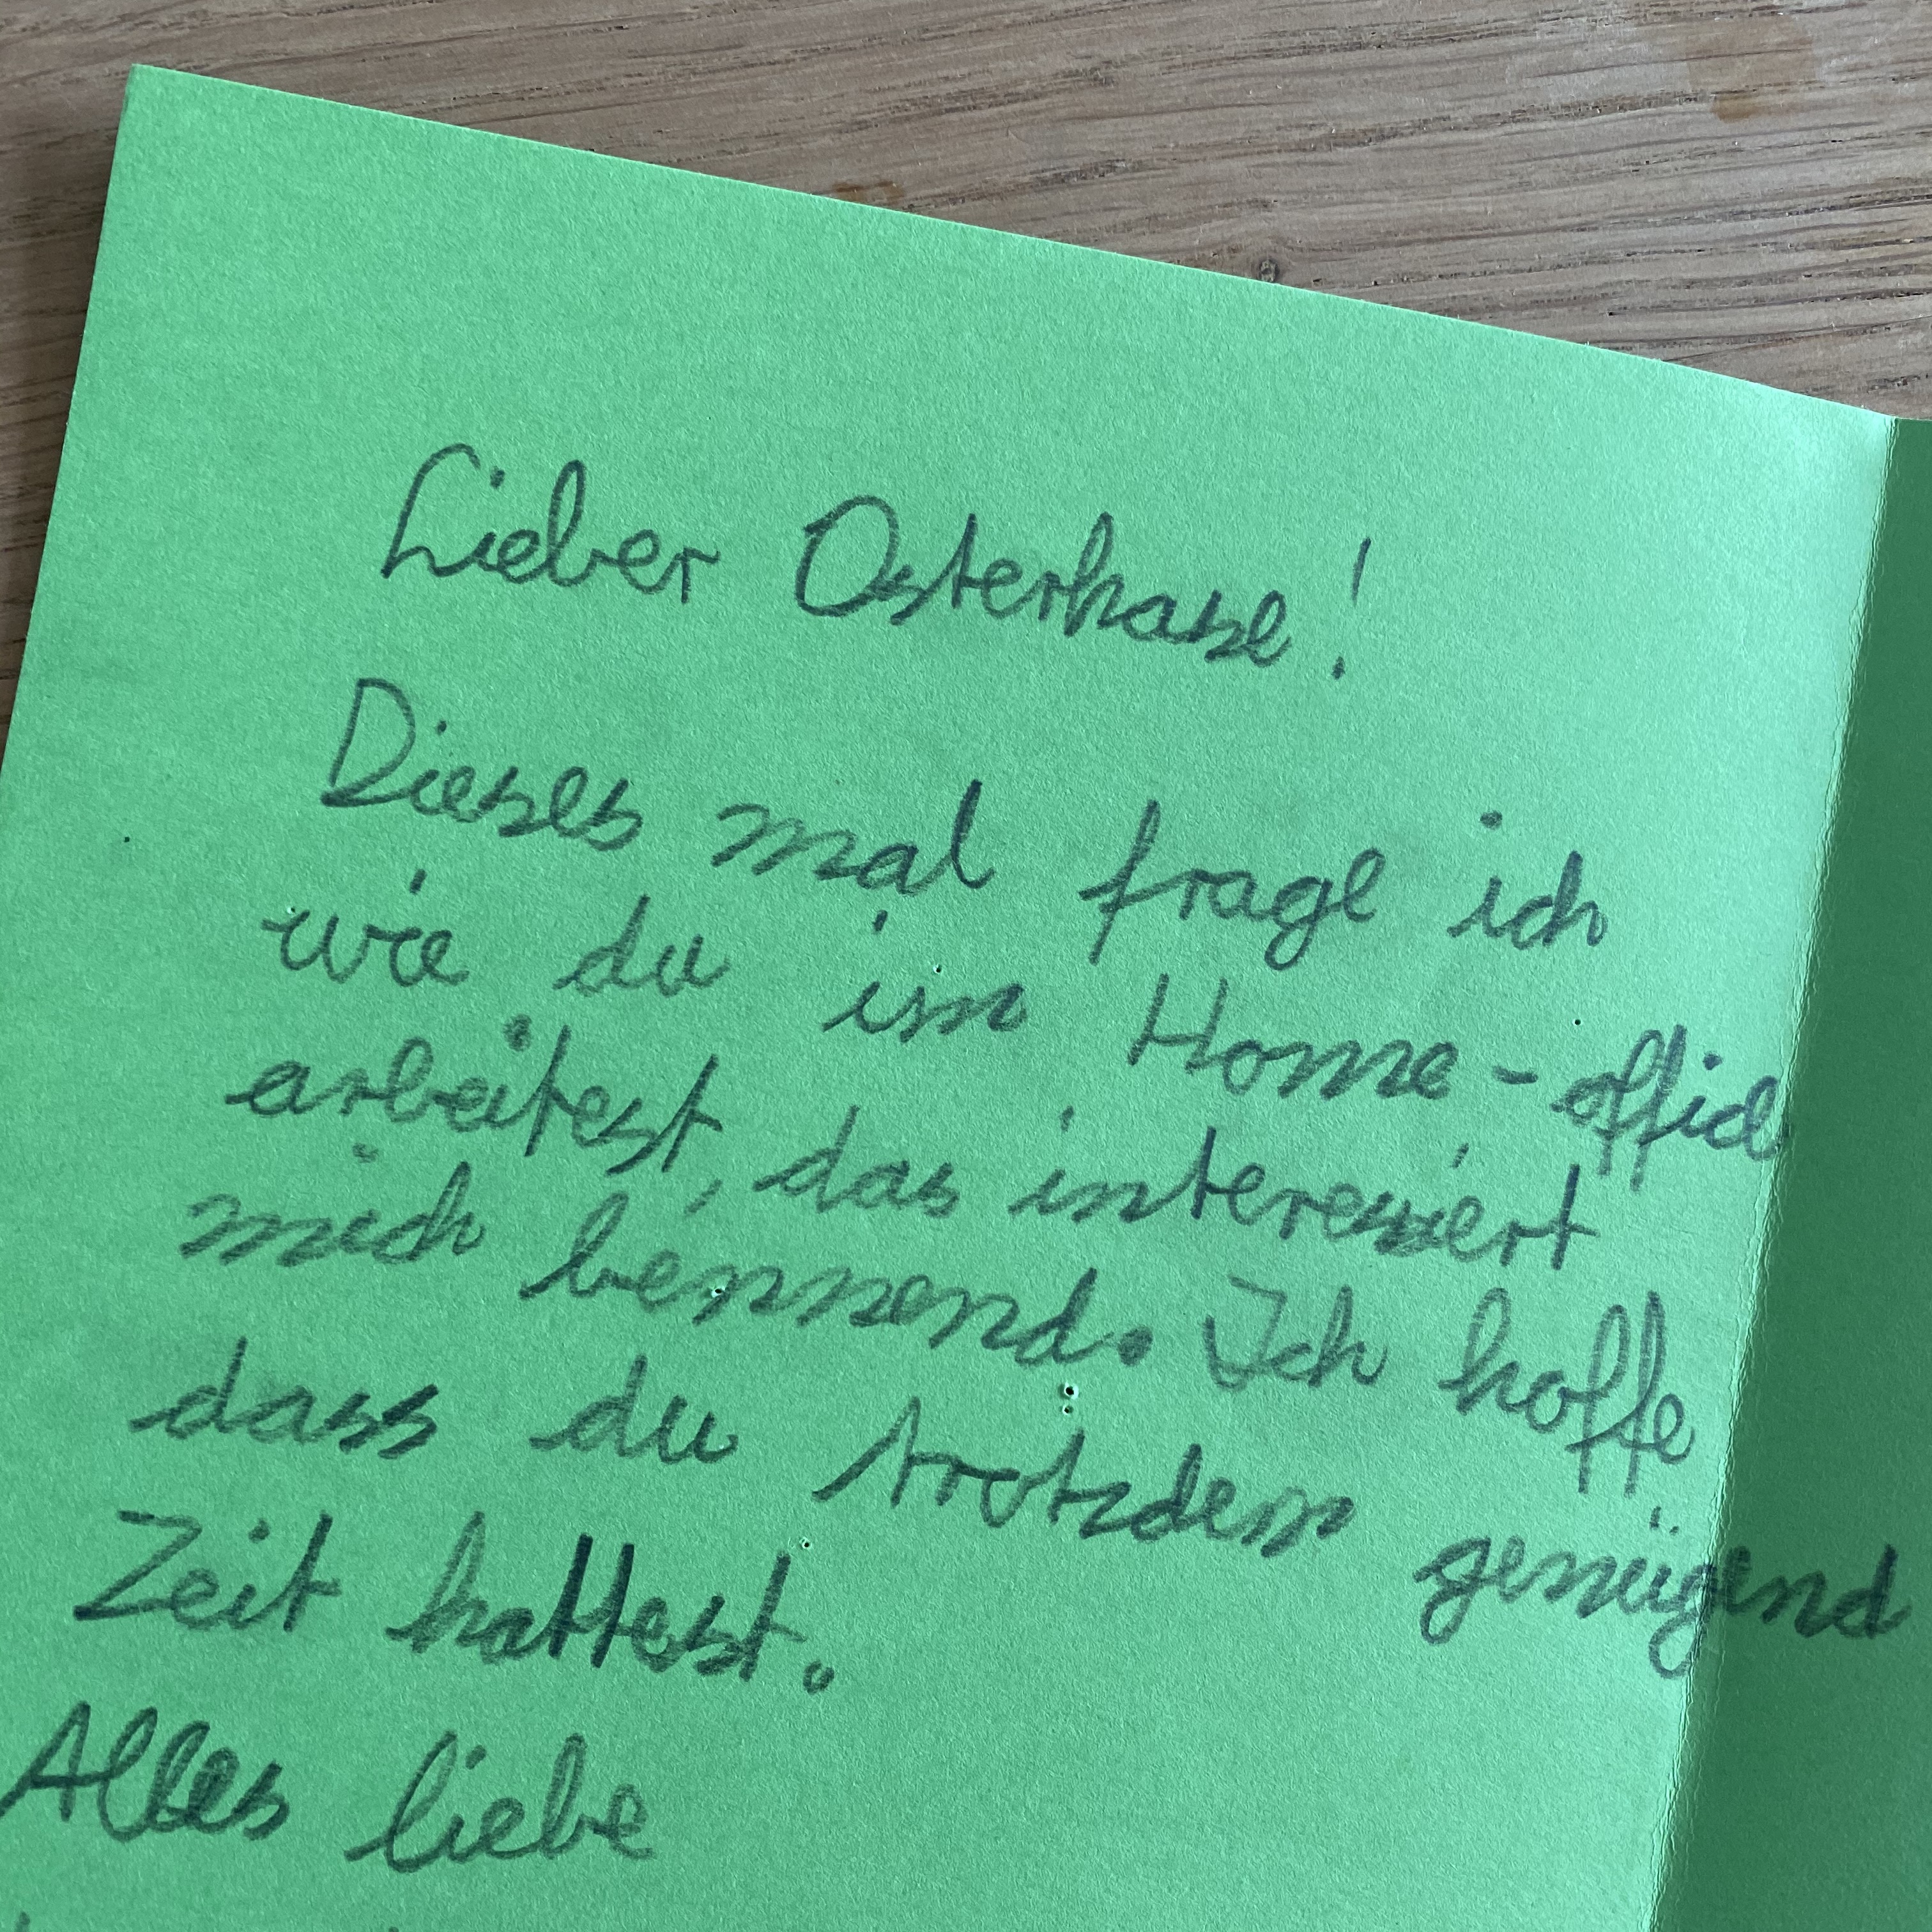 Lieber Osterhase!
Dieses mal frage ich
wie du im Home-office
arbeitest, das interessiert
mich bennend. Ich hoffe
dass du trotzdem genügend
Zeit hattest.
Alles liebe